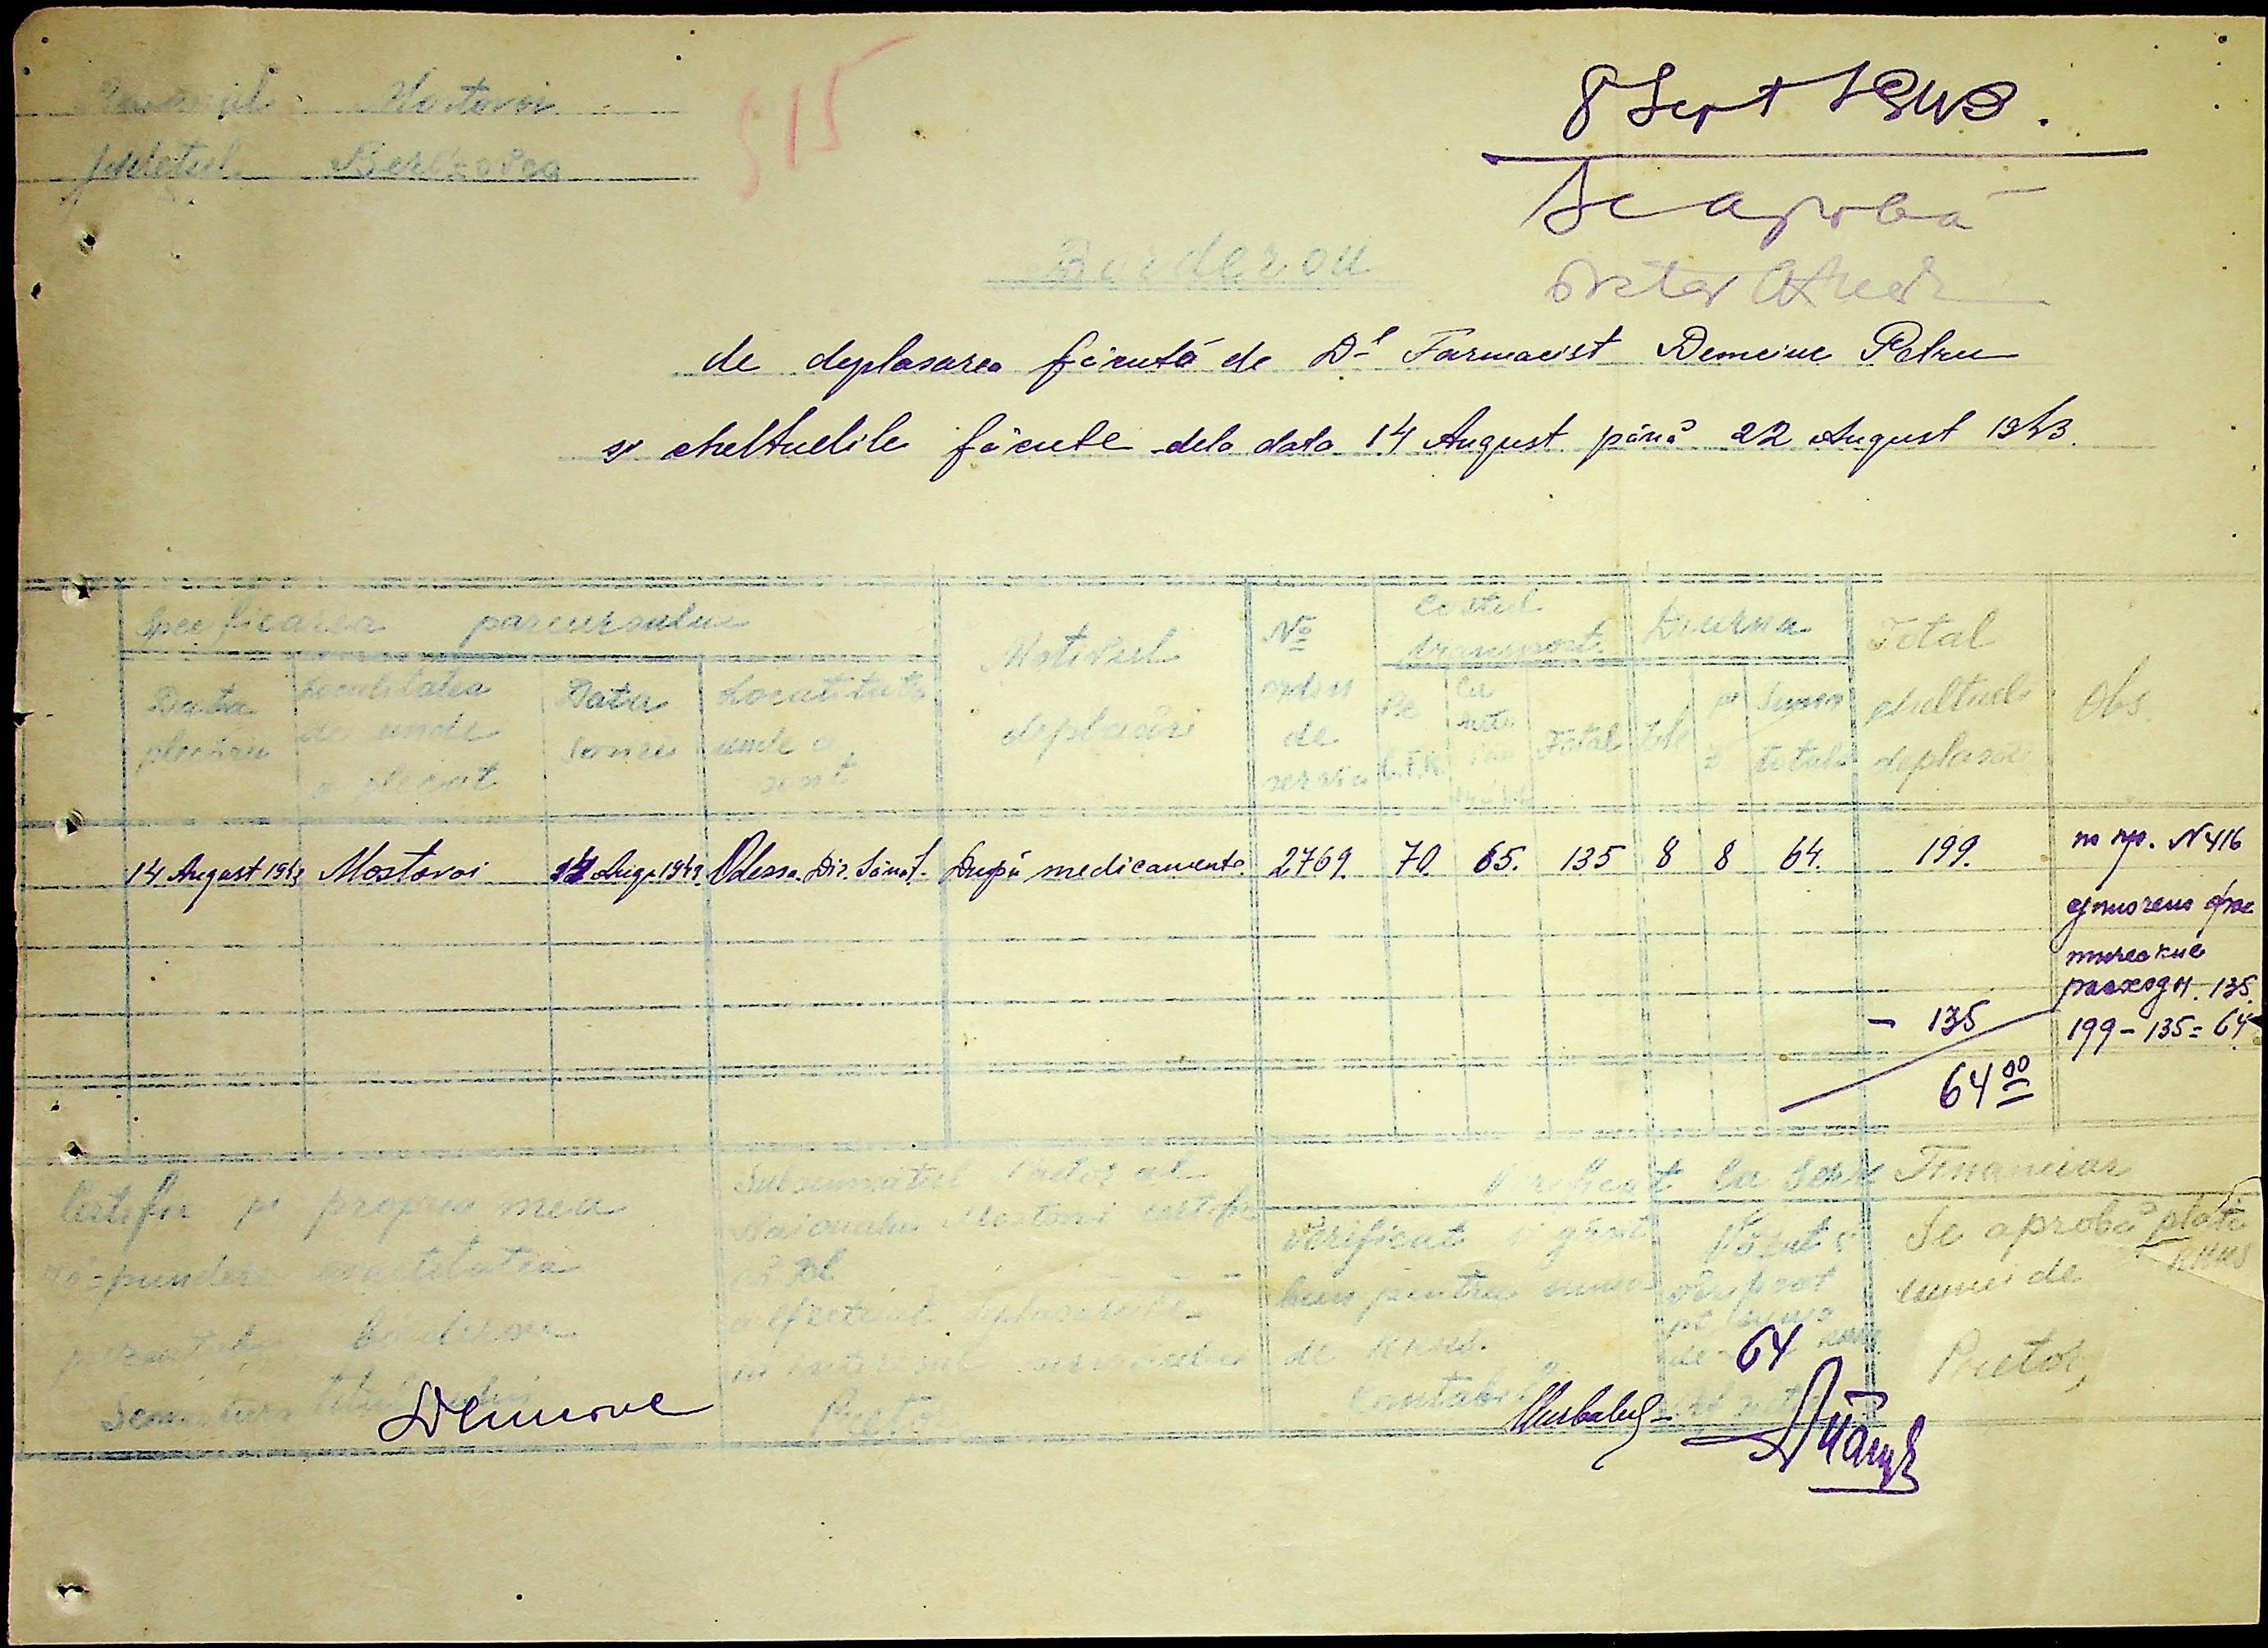 Raionul Mostovoi
Județul Berezovca
515
8 Sept 1943.
Se aprobă
Pretor
Borderou
de deplasarea făcută de D-l Farmacist Petru
și cheltuelile făcute dela data 14 August până 22 August 1943.
Specificarea parcursului
Data plecării
Localitatea de unde a plecat
Data sosirii
Localitatea unde a sosit
Motivul deplasării
No ordin de serviciu
Costul transport.
Pe C.F.R.
Cu
Total
Diurna
Zile
Suma totală
Total cheltueli deplasare
Obs.
14 August 1943 Mostovoi 14 Aug. 1943 Odessa. Dir. Sănăt. După medicamente. 2769. 70. 65. 135 8 8 64. 199.
по пр. N 416
расходн. 135.
199 - 135 = 64
- 135
64 00
Certific pe propria mea
răspundere exactitatea
prezentului borderou
Semnătura titularului
Subsemnatul Pretor al
Raionului Mostovoi certific
că Dl
a efectuat deplasarea
în interesul serviciului
Pretor
Verificat la Serv Financiar
Verificat și găsit
bun pentru suma
de
Contabil
Văzut și
pt suma
de 64
Se aprobă plata
sumei de
Pretor,